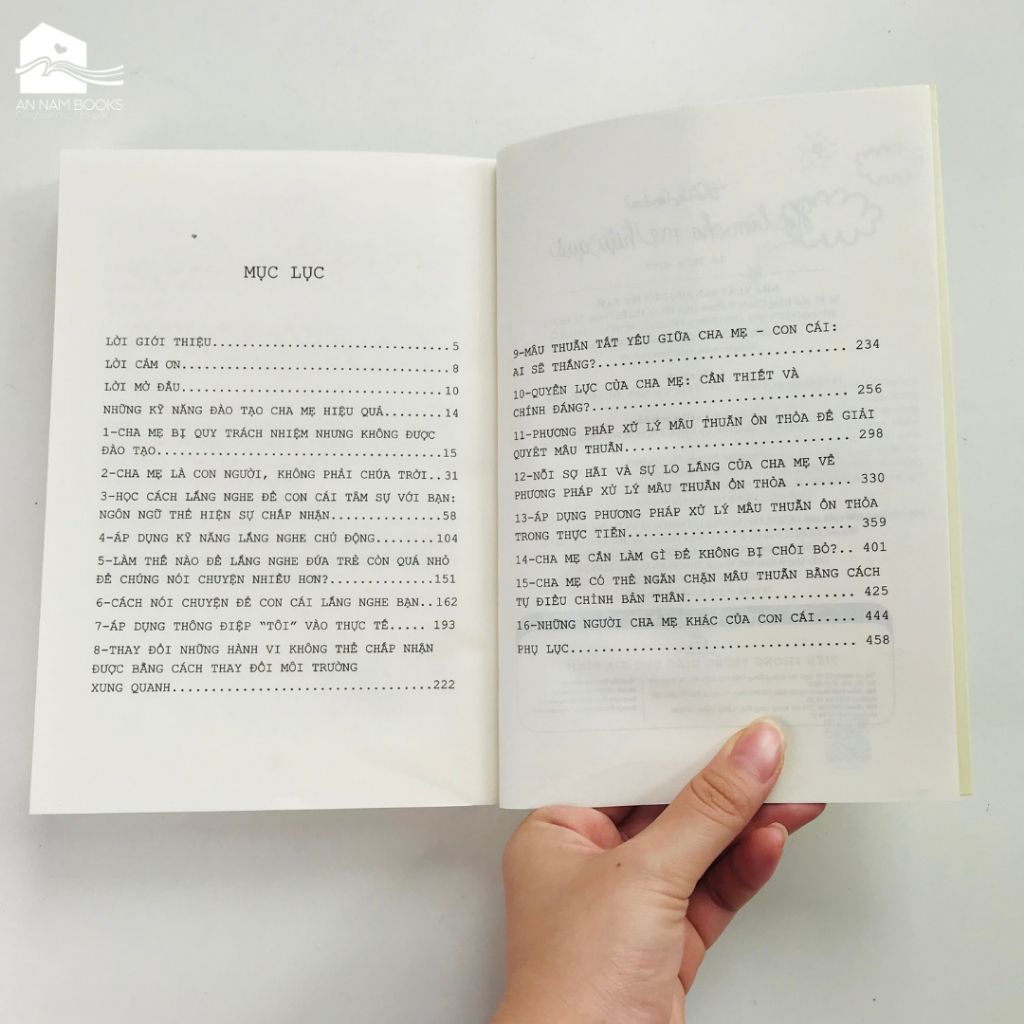 AN NAM BOOKS
MỤC LỤC
LỜI GIỚI THIỆU..................................5
LỜI CẢM ƠN......................................8
LỜI MỞ ĐẦU.....................................10
NHỮNG KỸ NĂNG ĐÀO TẠO CHA MẸ HIỆU QUẢ........14
1-CHA MẸ BỊ QUY TRÁCH NHIỆM NHƯNG KHÔNG ĐƯỢC
ĐÀO TẠO.........................................15
2-CHA MẸ LÀ CON NGƯỜI, KHÔNG PHẢI CHÚA TRỜI..31
3-HỌC CÁCH LẮNG NGHE ĐỂ CON CÁI TÂM SỰ VỚI BẠN:
NGÔN NGỮ THỂ HIỆN SỰ CHẤP NHẬN................58
4-ÁP DỤNG KỸ NĂNG LẮNG NGHE CHỦ ĐỘNG.........104
5-LÀM THẾ NÀO ĐỂ LẮNG NGHE ĐỨA TRẺ CÒN QUÁ NHỎ
ĐỂ CHÚNG NÓI CHUYỆN NHIỀU HƠN?...............151
6-CÁCH NÓI CHUYỆN ĐỂ CON CÁI LẮNG NGHE BẠN..162
7-ÁP DỤNG THÔNG ĐIỆP “TÔI” VÀO THỰC TẾ..... 193
8-THAY ĐỔI NHỮNG HÀNH VI KHÔNG THỂ CHẤP NHẬN
ĐƯỢC BẰNG CÁCH THAY ĐỔI MÔI TRƯỜNG
XUNG QUANH.....................................222
9-MÂU THUẪN TẤT YẾU GIỮA CHA MẸ - CON CÁI:
AI SẼ THẮNG?.................................. 234
10-QUYỀN LỰC CỦA CHA MẸ: CẦN THIẾT VÀ
CHÍNH ĐÁNG?................................... 256
11-PHƯƠNG PHÁP XỬ LÝ MÂU THUẪN ÔN THỎA ĐỂ GIẢI
QUYẾT MÂU THUẪN............................... 298
12-NỖI SỢ HÃI VÀ SỰ LO LẮNG CỦA CHA MẸ VỀ
PHƯƠNG PHÁP XỬ LÝ MÂU THUẪN ÔN THỎA ....... 330
13-ÁP DỤNG PHƯƠNG PHÁP XỬ LÝ MÂU THUẪN ÔN THỎA
TRONG THỰC TIỄN............................... 359
14-CHA MẸ CẦN LÀM GÌ ĐỂ KHÔNG BỊ CHỐI BỎ?.. 401
15-CHA MẸ CÓ THỂ NGĂN CHẶN MÂU THUẪN BẰNG CÁCH
TỰ ĐIỀU CHỈNH BẢN THÂN........................ 425
16-NHỮNG NGƯỜI CHA MẸ KHÁC CỦA CON CÁI..... 444
PHỤ LỤC....................................... 458